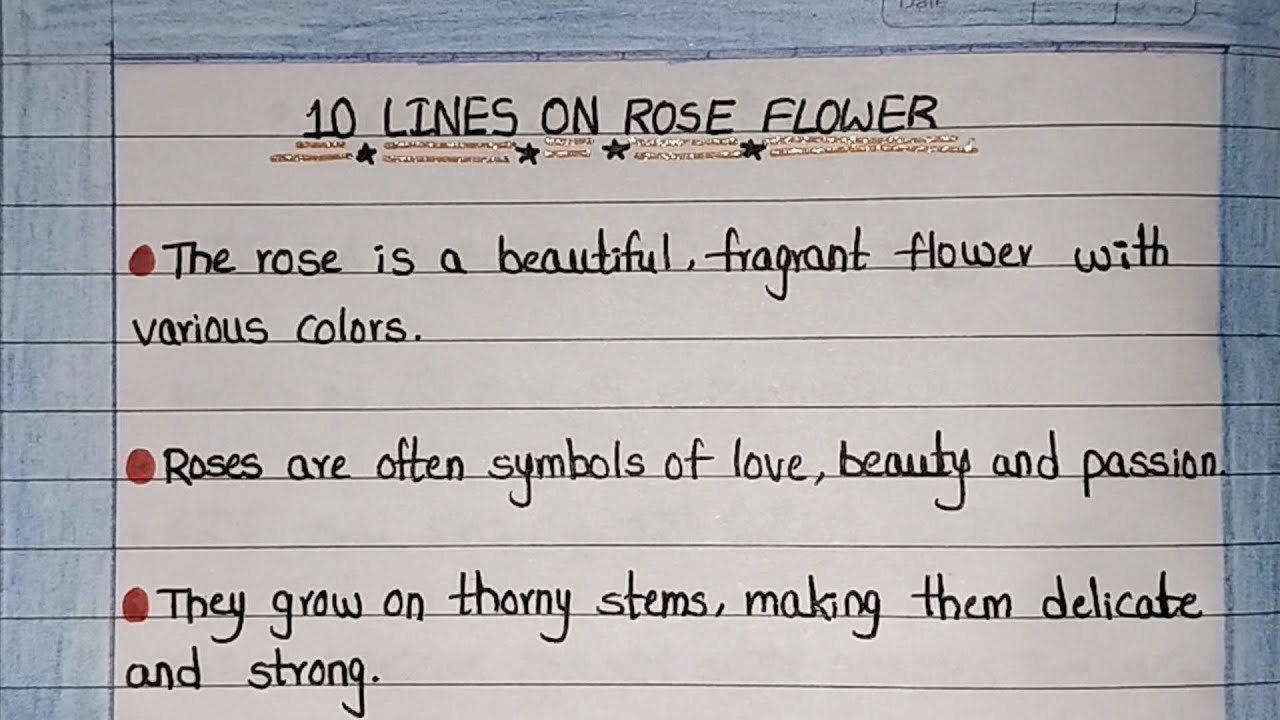 Date
10 LINES ON ROSE FLOWER
The rose is a beautiful, fragrant flower with
various colors.
Roses are often symbols of love, beauty and passion.
They grow on thorny stems, making them delicate
and strong.